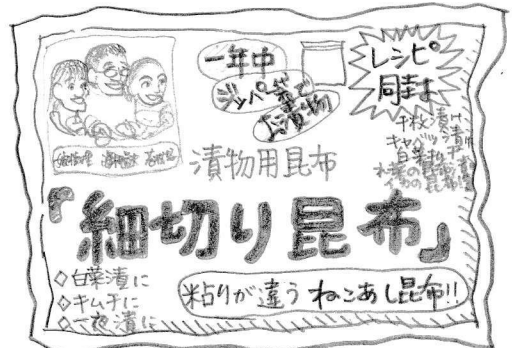 一年中
ジッパー袋で
お漬物
レシピ
同封
千枚漬け
キャベツ漬
白菜
漬物用昆布
『細切り昆布』
◇白菜漬に
◇キムチに
◇一夜漬に
粘りが違う ねこあし昆布!!